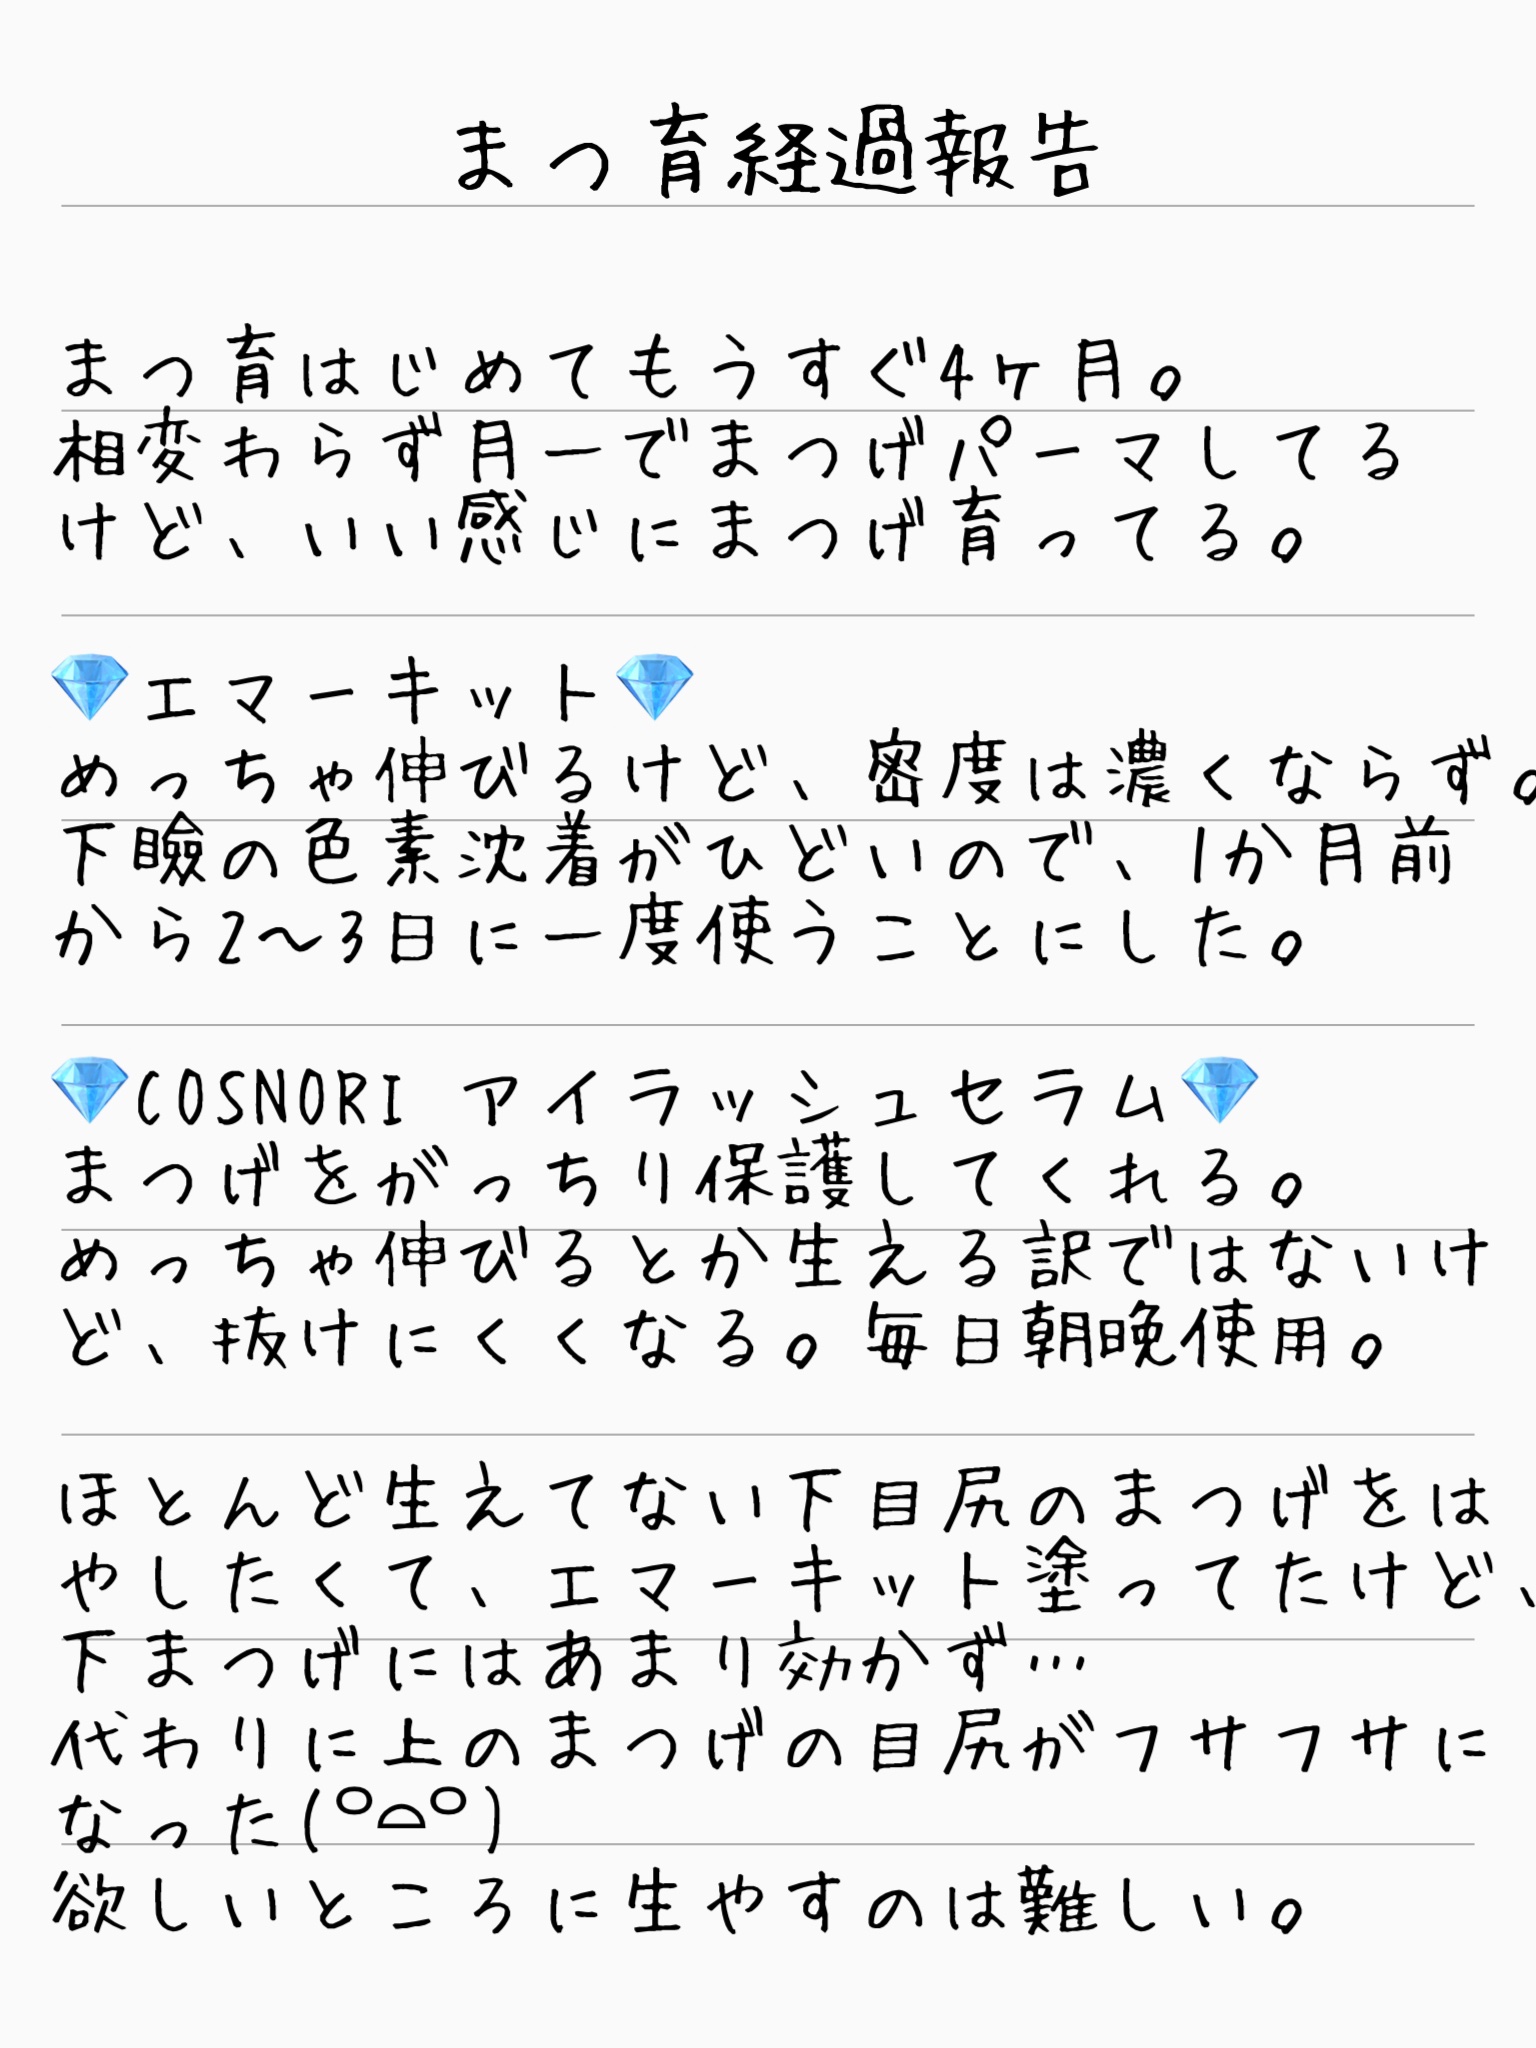 まつ育経過報告
まつ育はじめてもうすぐ4ヶ月。
相変わらず月一でまつげパーマしてる
けど、いい感じにまつげ育ってる。
💎エマーキット💎
めっちゃ伸びるけど、密度は濃くならず。
下瞼の色素沈着がひどいので、1か月前
から2〜3日に一度使うことにした。
💎COSNORI アイラッシュセラム💎
まつげをがっちり保護してくれる。
めっちゃ伸びるとか生える訳ではないけ
ど、抜けにくくなる。毎日朝晩使用。
ほとんど生えてない下目尻のまつげをは
やしたくて、エマーキット塗ってたけど、
下まつげにはあまり効かず…
代わりに上のまつげの目尻がフサフサに
なった(º⌓º)
欲しいところに生やすのは難しい。